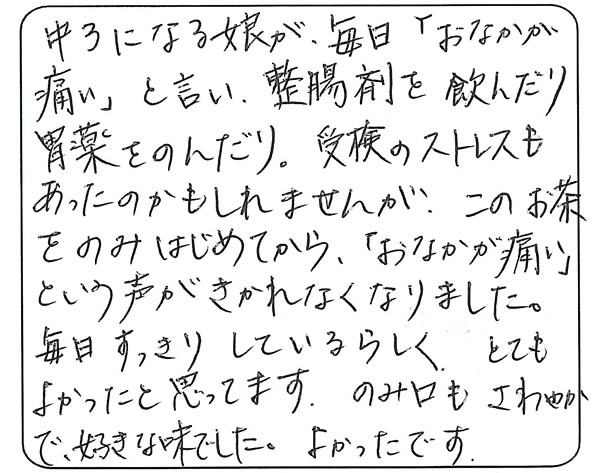 中3になる娘が、毎日「おなかが
痛い」と言い、整腸剤を飲んだり
胃薬をのんだり。受検のストレスも
あったのかもしれませんが、このお茶
をのみはじめてから、「おなかが痛い」
という声がきかれなくなりました。
毎日すっきりしているらしく、とても
よかったと思ってます。のみ口もさわやか
で、好きな味でした。よかったです。